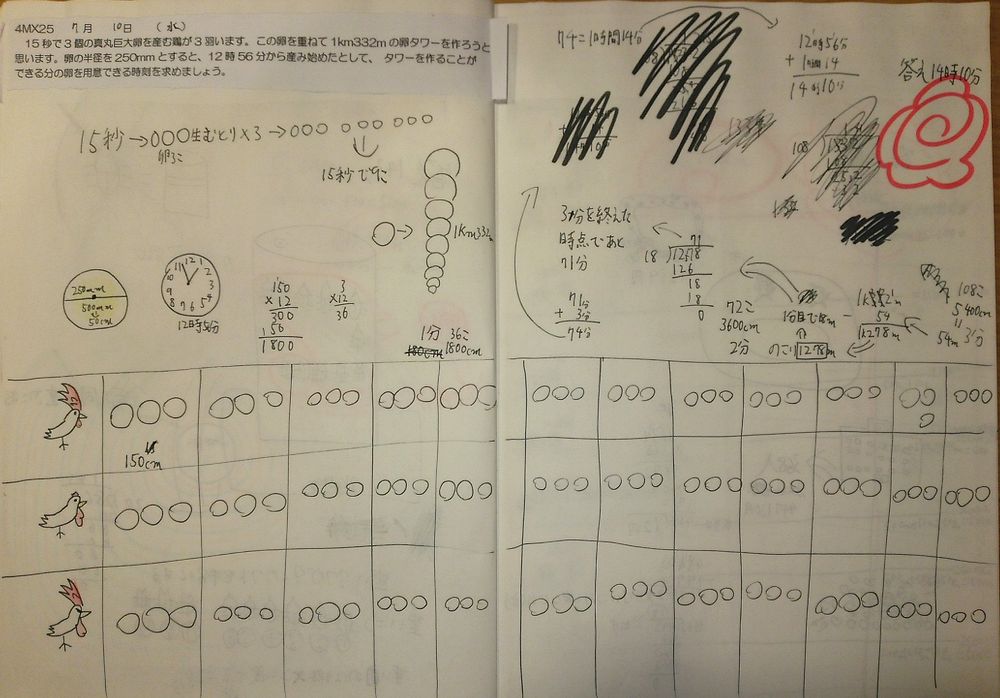 4MX25 7月 10日 (水)
15秒で3個の真丸巨大卵を産む鶏が3羽います。この卵を重ねて1km332mの卵タワーを作ろうと
思います。卵の半径を250mmとすると、12時56分から産み始めたとして、タワーを作ることが
できる分の卵を用意できる時刻を求めましょう。
15秒→○○○生むとり×3→○○○ ○○○ ○○○
卵3こ
15秒で9こ
1km332m
250mm
500mm
50cm
12 1 2 3 4 5 6 7 8 9 10 11
12時56分
150
×12
300
150
1800
3
×12
36
1分 36こ
1800cm
150cm
74=1時間14分
12時56分
+1時間14
14時10分
答え14時10分
108
3分を終えた
時点であと
71分
71分
+3分
74分
71
18 1278
126
18
18
0
72こ
3600cm
2分
1分目で18m
のこり1278m
54
1278m
108こ
5400cm
54m 3分